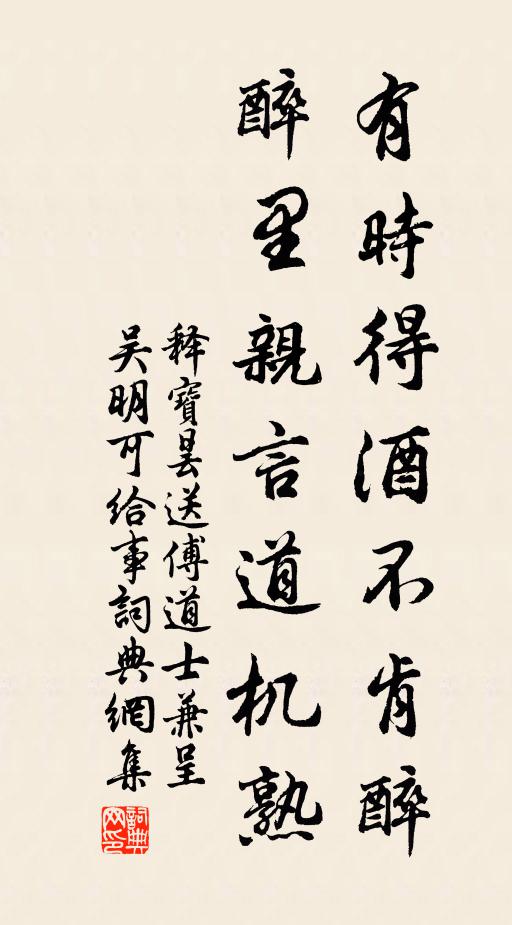 有時得酒不肯醉
醉里親言道机熟
释寶曇送傅道士兼呈
吴明可给事詞典網集
詞典
网印